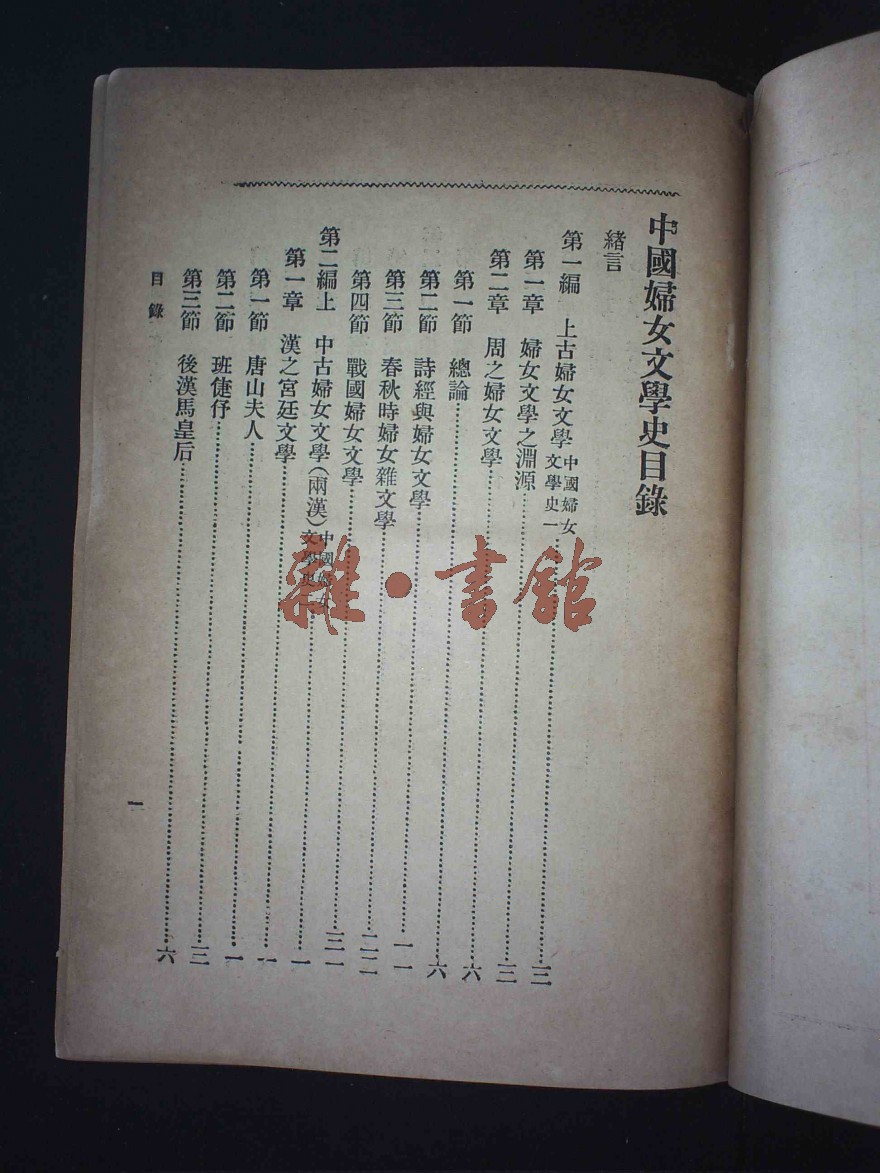 中國婦女文學史目錄
緒言
第一編 上古婦女文學 中國婦女文學史一……三
第一章 婦女文學之淵源……三
第二章 周之婦女文學……六
第一節 總論……六
第二節 詩經與婦女文學……一一
第三節 春秋時婦女雜文學……二二
第四節 戰國婦女文學……三一
第二編上 中古婦女文學(兩漢) 中國婦女文學史……一
第一章 漢之宮廷文學……一
第一節 唐山夫人……一
第二節 班倢伃……三
第三節 後漢馬皇后……六
目錄
一
雜·書館